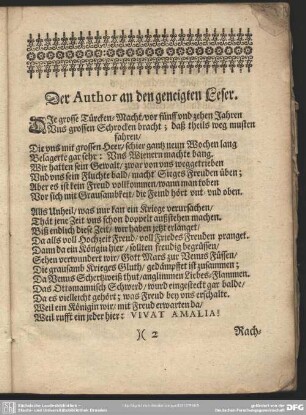 Der Author an den geneigten Leser.
DIe grosse Türcken/Macht/vor fünff vnd zehen Jahren
Vns grossen Schrocken bracht; daß theils weg musten
fahren/
Die vns mit grossen Heer/schier gantz neun Wochen lang
Belagerte gar sehr; Vns Wienern machte bang.
Wir hatten sein Gewalt/zwar von uns weggetrieben
Vnd vns sein Fluchte bald/macht Sieges Freuden üben;
Aber es ist kein Freud vollkommen/wann man toben
Vor sich mit Grausambkeit/die Feind hört vnt- vnd oben.
Alls Unheil/was nur kan ein Kriege verursachen/
Thät jene Zeit vns schon doppelt auffstehen machen.
Biß endlich diese Zeit/wir haben jetzt erlänget/
Da alls voll Hochzeit Freud/voll Friedes Freuden pranget.
Dann da ein Königin hier/sollten freudig begrüssen/
Sehen verwundert wir/Gott Mars zur Venus Füssen/
Die grausamb Krieges Gluth/gedämpffet ist zusammen;
Da Venus Schertzweiß thut/anglimmen Liebes-Flammen.
Das Ottomannisch Schwerd/wurd eingesteckt gar balde/
Da es vielleicht gehört; was Freud bey vns erschalte.
Weil ein Königin wir/mit Freuden erwarten da/
Weil rufft ein jeder hier: VIVAT AMALIA!
)( 2
Rach-